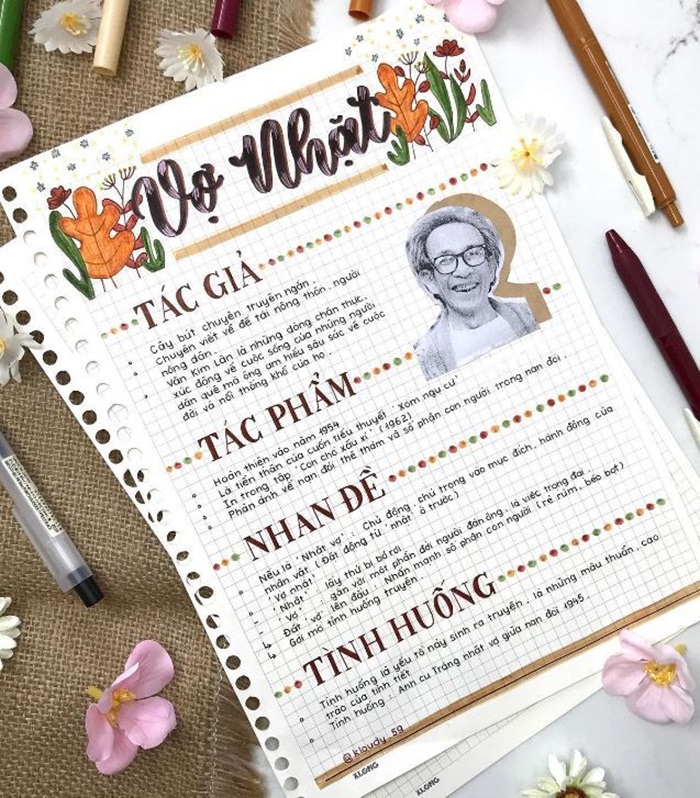 Vợ Nhặt
TÁC GIẢ
Cây bút chuyên truyện ngắn.
Chuyên viết về đề tài nông thôn, người
nông dân.
Văn Kim Lân là những dòng chân thực,
xúc động về cuộc sống của những người
dân quê mà ông am hiểu sâu sắc về cuộc
đời và nỗi thống khổ của họ.
TÁC PHẨM
Hoàn thiện vào năm 1954
Là tiền thân của cuốn tiểu thuyết "Xóm ngụ cư"
In trong tập "Con chó xấu xí" (1962)
Phản ánh về nạn đói thê thảm và số phận con người trong nạn đói.
NHAN ĐỀ
Nếu là "Nhặt vợ": Chủ động, chú trọng vào mục đích, hành động của
nhân vật (Đặt động từ "nhặt" ở trước)
- "Vợ nhặt":
- "Nhặt": lấy thứ bị bỏ rơi.
- "Vợ": gắn với một phần đời người đàn ông, là việc trọng đại.
↳ Đặt "vợ" lên đầu: Nhấn mạnh số phận con người (rẻ rúm, bèo bọt)
↳ Gợi mở tình huống truyện.
TÌNH HUỐNG
Tình huống là yếu tố nảy sinh ra truyện, là những mâu thuẫn, cao
trào của tình tiết
Tình huống: Anh cu Tràng nhặt vợ giữa nạn đói 1945.
@kloudy.59
KLONG
KLONG